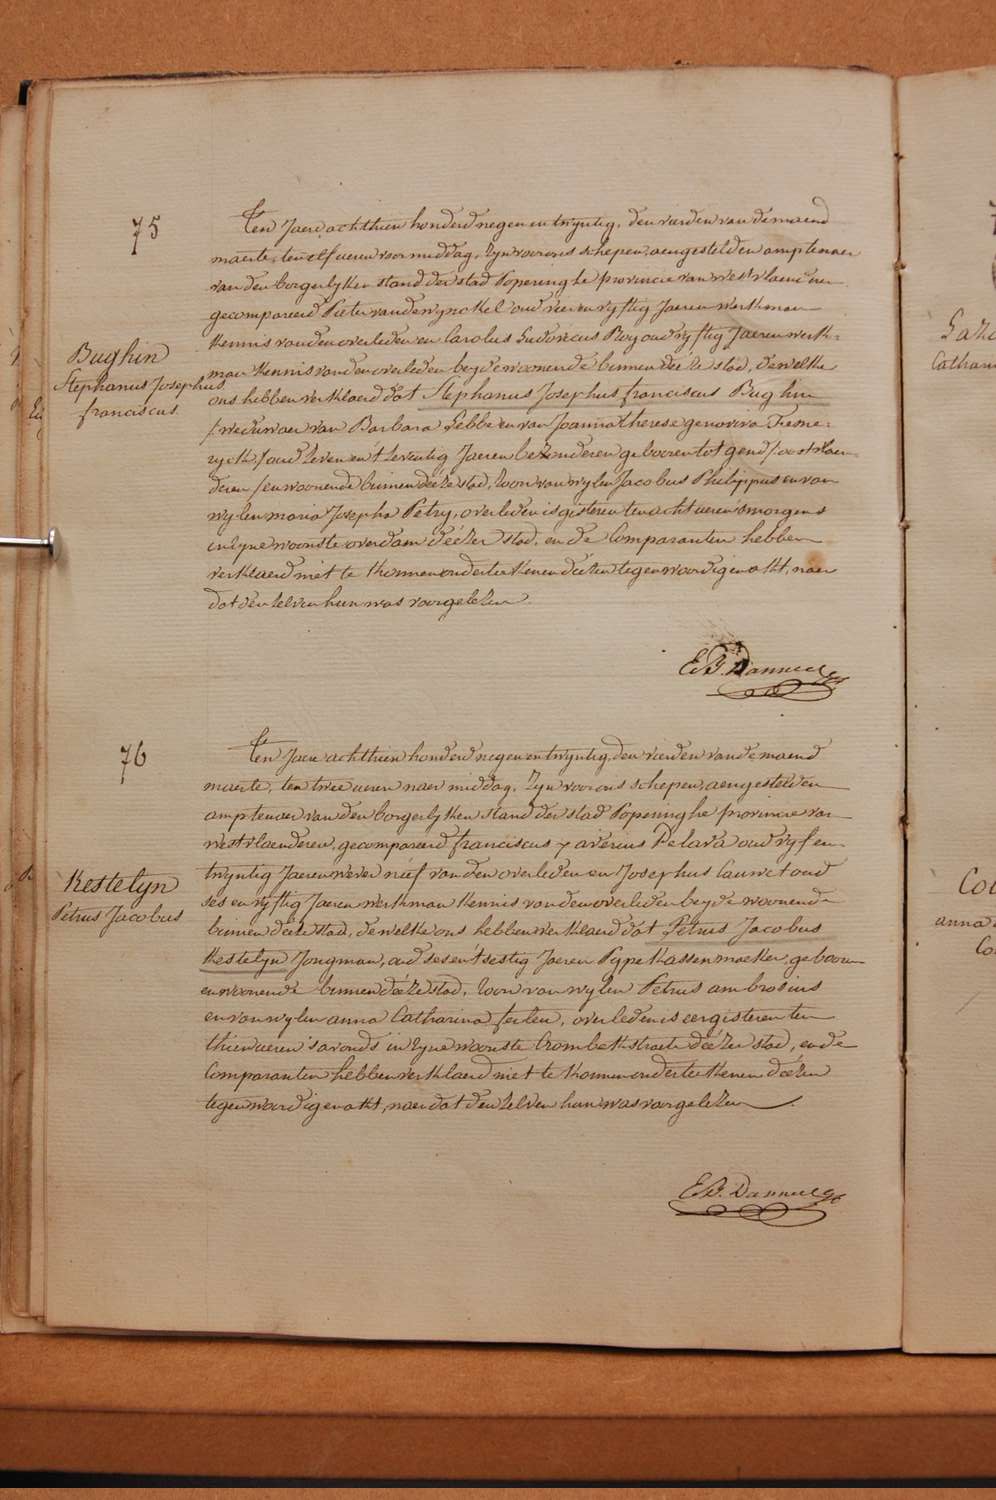 75
Bughin
Stephanus Josephus
franciscus
Ten Jaere achthien honderd negen en twyntig, den vierden van de maend
maerte, ten elf ueren voormiddag, zyn voor ons schepen, aengestelden amptenaer
van den borgerlyken stand der stad Poperinghe provincie van westvlaenderen
gecompareerd Pieter vandewynckel oud vier en vyftig Jaeren werkman
kennis van den overleden en Carolus Ludovicus Roy oud vyftig Jaeren werk=
man kennis van den overleden beyde woonende binnen deeze stad, de welke
ons hebben verklaerd dat Stephanus Josephus franciscus Bughin
/weduwaer van Barbara Lebbe en van Joanna therese genoviva
oud zeven en t'zeventig Jaeren bezonderen gebooren tot gend /oostvlaen-
deren/ en woonende binnen deeze stad, zoon van wylen Jacobus Philippus en van
wylen maria Josepha Petry, overleden is gisteren ten acht ueren 's morgens
in zyne woonste overdam deézer stad, en de Comparanten hebben
verklaerd niet te konnen onderteekenen deézen tegenwoordigen akt, naer
dat den zelven hun was voorgelezen.
76
Kestelyn
Petrus Jacobus
Ten Jaere achthien honderd negen en twyntig, den vierden van de maend
maerte, ten twee ueren naer middag, zyn voor ons schepen, aengestelden
amptenaer van den borgerlyken stand der stad Poperinghe provincie van
westvlaenderen, gecompareerd franciscus xaverius Delava oud vyf en
twyntig Jaeren wever néef van den overleden en Josephus Cauwet oud
ses en vyftig Jaeren werkman kennis van den overleden beyde woonende
binnen deéze stad, de welke ons hebben verklaerd dat Petrus Jacobus
Kestelyn Jongman, oud ses en t'sestig Jaeren Pypekassenmaeker, gebooren
en woonende binnen deéze stad, zoon van wylen Petrus ambrosius
en van wylen anna Catharina, overleden is eergisteren ten
thien ueren 's avonds in zyne woonste Crombekstraete deézer stad, en de
Comparanten hebben verklaerd niet te konnen onderteekenen deézen
tegenwoordigen akt, naer dat den zelven hun was voorgelezen.